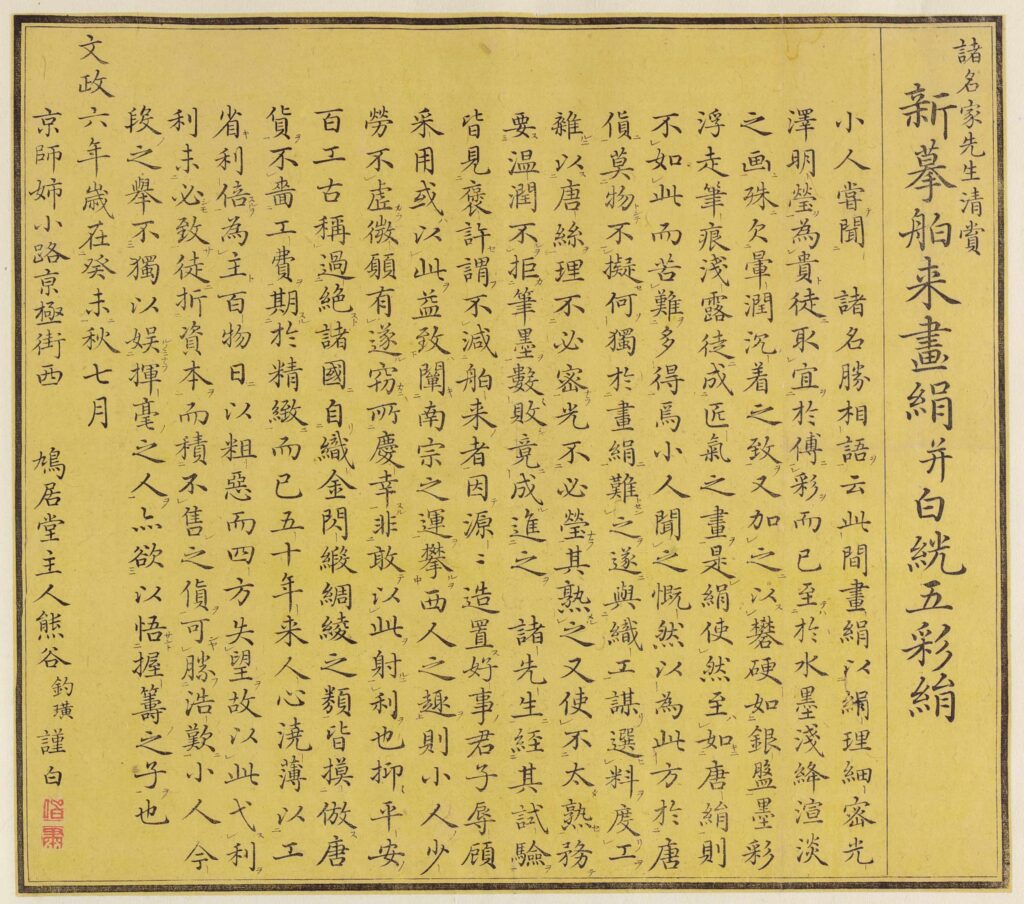 諸名家先生清賞
新摹舶来畫絹并白絖五彩絹
小人甞聞　諸名勝相語云此間畫絹以絹理細密光
澤明瑩為貴徒取宜於傅彩而已至於水墨淺絳渲淡
之画殊欠暈潤沉着之致又加之以礬硬如銀盤墨彩
浮走筆痕浅露徒成匠氣之畫是絹使然至如唐絹則
不如此而苦難多得焉小人聞之慨然以為此方於唐
貨莫物不擬何獨於畫絹難之遂與織工謀選料度工
雜以唐絲理不必密光不必瑩其熟之又使不太熟務
要温潤不拒筆墨數敗竟成進之　諸先生經其試驗
皆見褒許謂不減舶来者因源〻造置好事君子辱顧
采用或以此益致闡南宗之運攀西人之趣則小人少
勞不虚微願有遂窃所慶幸非敢以此射利也抑平安
百工古稱過絶諸國自織金閃緞綢綾之類皆摸倣唐
貨不嗇工費期於精緻而已五十年来人心澆薄以工
省利倍為主百物日以粗惡而四方失望故以此弋利
利未必致徒折資本而積不售之貨可勝浩歎小人今
段之舉不獨以娯揮毫之人亦欲以悟握籌之子也
文政六年歳在癸未秋七月
京師姉小路京極街西　鳩居堂主人熊谷釣璜謹白